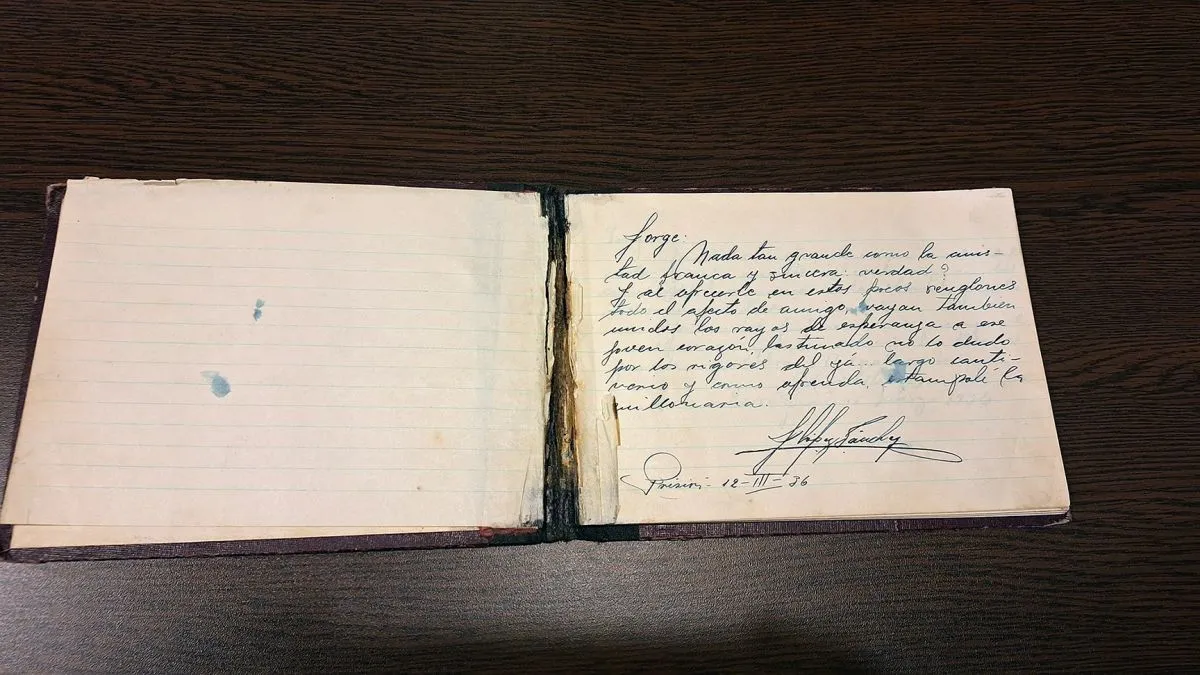 Jorge:
Nada tan grande como la amis-
tad franca y sincera verdad?
Y al ofrecerle en estos pocos renglones
todo el afecto de amigo, vayan también
unidos los rayos de esperanza a ese
joven corazón, lastimado no lo dudo
por los rigores del yá... largo cauti-
verio y como ofrenda,
millonaria.
Sánchez
Prisión - 12-III-36